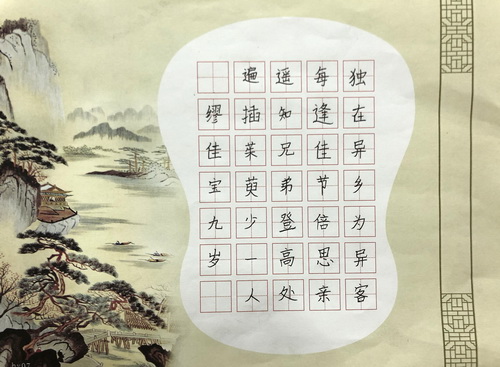 独在异乡为异客
每逢佳节倍思亲
遥知兄弟登高处
遍插茱萸少一人
缪佳宝九岁